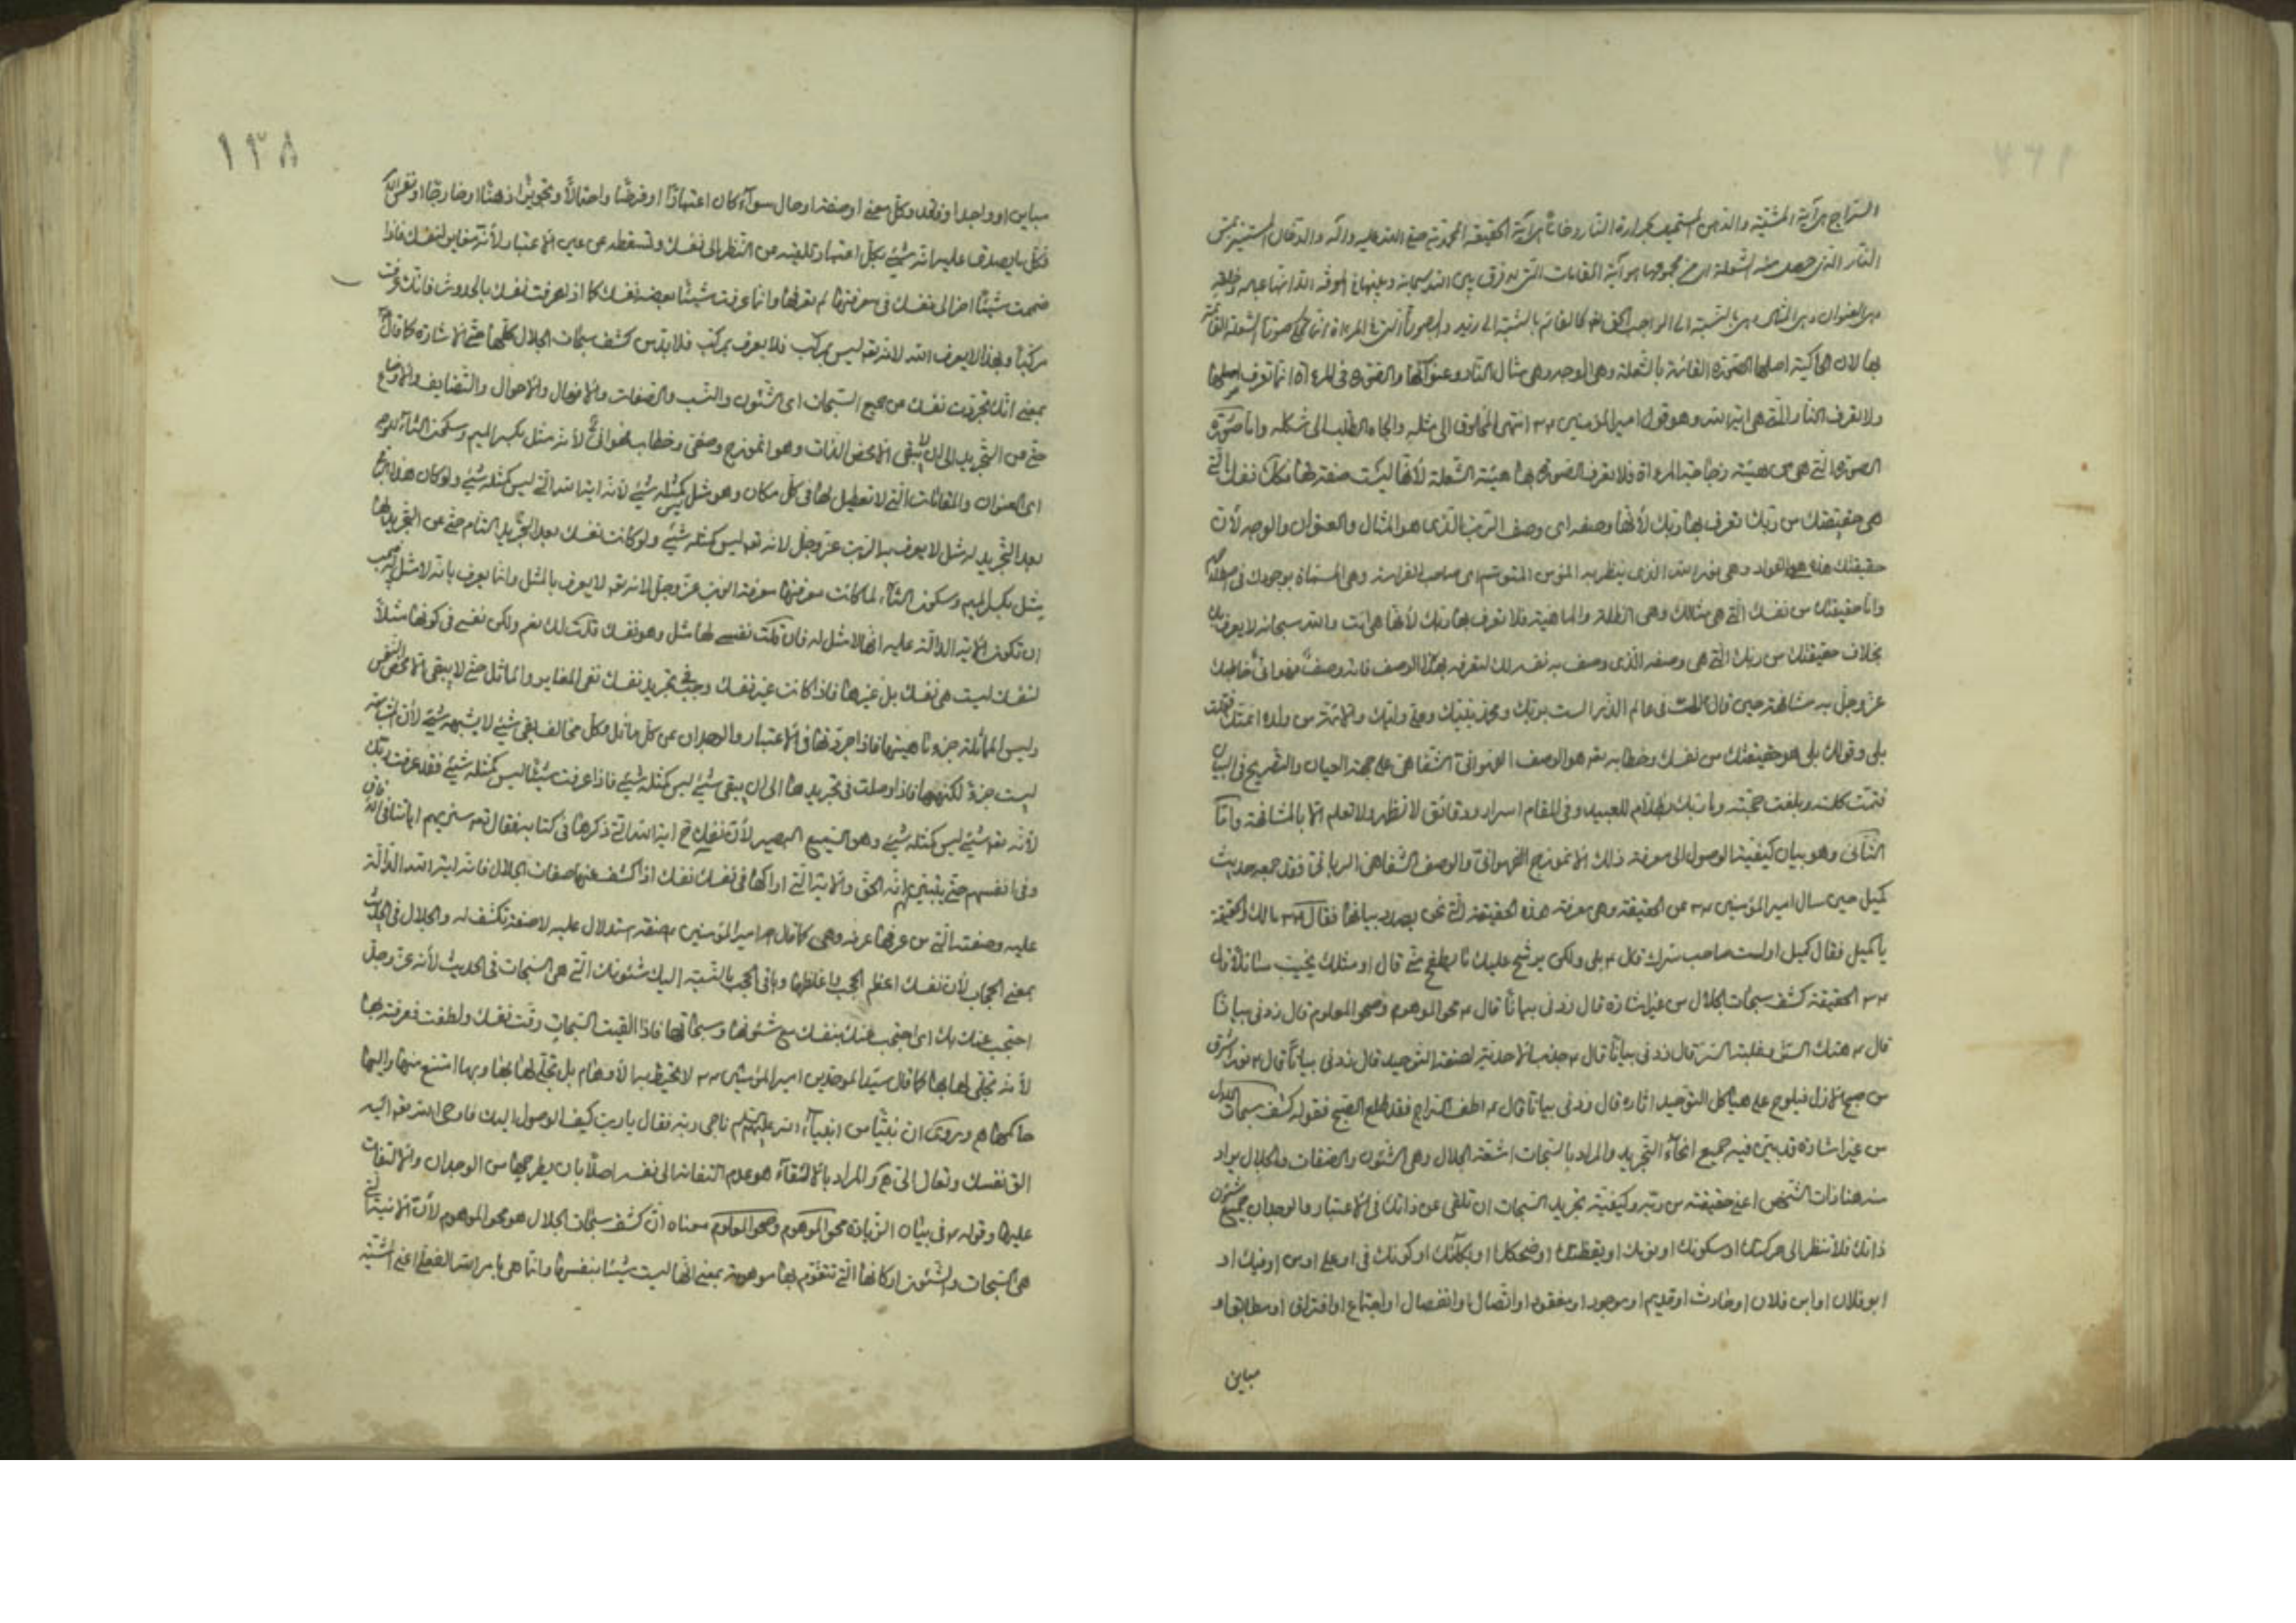 السراج هو آية المشية والدهن المستضيئ بحرارة النار وخان هو آية الحقيقة المحمدية صلى الله عليه وآله والدخان المستنير بمس
النار الذي حصل منه الشعلة
بها لان الحاكية اصلها الصورة القائمة بالشعلة وهي الوجه وهي مثال النار وعنوانها والصورة في المرءاة انما تعرف اصلها
ولا تعرف النار الا التي هي اية الله وهو قول امير المؤمنين ٤٣ انتهى المخلوق الى مثله والجاه الطلب الى شكله واما صورة
الصورة التي هي من هيئة زجاجة المرءاة فلا تعرف الصورة بها هيئة الشعلة لأنها ليست صفة لها فكك نفسك التي
هي حقيقتك من ربك تعرف بها ربك لأنها وصفه اى وصف الرب الذى هو المثال والعنوان والوجه لأن
حقيقتك هذه هو الفؤاد وهى نور الله الذى ينظر به المؤمن المتوسم اى صاحب الفراسة وهى المسماة بوجودك في
واما حقيقتك من نفسك التي هي مثالك وهى الظلة والماهية فلا تعرف بها ربك لأنها هي انت والله سبحانه لا يعرف بك
بخلاف حقيقتك من ربك التي هى وصفه الذى وصف به نفسه لك لتعرفه بهذا الوصف فانه وصف فهوانى خاطبك
عز وجل به مشافهة حين قال لك في عالم الذر الست بربك ومحمد نبيك وعلى وليك والائمة من ولده ائمتك فقلت
بلى وقولك بلى هو حقيقتك من نفسك وخطابه تعه هو الوصف الفهوانى الشفاهى على جهة العيان والتصريح في البيان
فتمت كلمته وبلغت حجته وما ربك بظلام للعبيد وفى المقام اسرار ودقائق لا تظهر ولا تعلم الا بالمشافهة واما
الثانى وهو بيان كيفية الوصول الى معرفة ذلك الانموذج الفهوانى والوصف الشفاهى الربانى فقد جمعه حديث
كميل حين سال امير المؤمنين ٤٣ عن الحقيقة وهى معرفة هذه الحقيقة التي نحن بصدد بيانها فقال ٤٣ مالك والحقيقة
يا كميل فقال كميل اولست صاحب سرك قال ٤ بلى ولكن يرشح عليك ما يطفح منى قال او مثلك يخيب سائلا قال
٤٣ الحقيقة كشف سبحات الجلال من غير اشارة قال زدنى بيانا قال ٤ محو الموهوم وصحو المعلوم قال زدنى بيانا
قال ٤ هتك الستر لغلبة السر قال زدنى بيانا قال ٤ جذب الاحدية لصفة التوحيد قال زدنى بيانا قال ٤ نور اشرق
من صبح الازل فيلوح على هياكل التوحيد اثاره قال زدنى بيانا قال ٤ اطف السراج فقد طلع الصبح فقوله كشف سبحات الجلال
من غير اشارة قد بين فيه جميع انحاء التجريد والمراد بالسبحات اشعة الجلال وهى الشئون والصفات والجلال يراد
منه هنا ذات الشخص اعنى حقيقته من ربه وكيفية تجريد السبحات ان تلقى عن ذاتك في الاعتبار والوجدان جميع شئون
ذاتك فلا تنظر الى حركتك او سكونك او نومك او يقظتك او ضحكك او بكائك او كونك في او على او من او فيك او
ابو فلان او ابن فلان او حادث او قديم او موجود او مفقود او اتصال او انفصال او اجتماع او افتراق او مطابق او
مباين
١٣٨
مباين او واجد او فاقد وكل معنى او صفة او حال سواء كان اعتبارا او فرضا واحتمالا وتجويزا ذهنا او خارجا او نفس
فكل ما يصدق عليه انه شئ بكل اعتبار تلقيه من النظر الى نفسك وتسقطه عن عين الاعتبار لأنه مغاير لنفسك فاذا
ضممت شيئا اخر الى نفسك فى معرفتها لم تعرفها وانما عرفت شيئا بعضه نفسك كما اذا عرفت نفسك بالحدوث فانك عرفت
مركبا وبهذا لا يعرف الله لانه تعه ليس بمركب فلا يعرف بمركب فلا بد من كشف سبحات الجلال كلها حتى الاشارة كما قال
بمعنى انك تجردت نفسك من جميع السبحات اى الشئون والنسب والصفات والافعال والاحوال والتضايف والاوضاع
حتى من التجريد الى ان لا يبقى الا محض الذات وهو انموذج وصفى وخطاب فهوانى لأنه مثل بكسر الميم وسكون الثاء
اى العنوان والمقامات التي لا تعطيل لها في كل مكان وهو مثل ليس كمثله شئ لأنه اية الله التي ليس كمثله شئ ولو كان هذا
بعد التجريد له مثل لا يعرف به الرب عز وجل لانه تعه ليس كمثله شئ ولو كانت نفسك بعد التجريد التام حتى عن التجريد لها
مثل بكسر الميم وسكون الثاء لما كانت معرفتها معرفة الرب عز وجل لانه تعه لا يعرف بالمثل وانما يعرف بانه لا مثل له فيجب
ان تكون الاية الدالة عليه انها لا مثل له فان قلت نفسى لها مثل وهو نفسك قلت لك نعم ولكن نفسى فى كونها مثلا
لنفسك ليست هى نفسك بل غيرها فاذا كانت غير نفسك وجب فى تجريد نفسك نفى المغاير والمماثل حتى لا يبقى الا محض النفس
وليس المماثلة جزء ماهيتها فاذا جردتها فى الاعتبار والوجدان عن كل مماثل وكل مخالف بقى شئ لا يشبهه شئ لأن المشابهة
ليست جزء لكنهها فاذا وصلت فى تجريدها الى ان يبقى شئ ليس كمثله شئ فاذا عرفت شيئا ليس كمثله شئ فقد عرفت ربك
لأنه تعه شئ ليس كمثله شئ وهو السميع البصير لأن نفسك ح اية الله التي ذكرها في كتابه فقال تعه سنريهم اياتنا فى الافاق
وفى انفسهم حتى يتبين لهم انه الحق والاية التي اراكها في نفسك نفسك اذا كشف عنها صفات الجلال فانه اية الله الدالة
عليه وصفته التي من عرفها عرفه وهى كما قال امير المؤمنين ٤ صفة استدلال عليه لا صفة تكشف له والجلال فى الحديث
بمعنى الحجاب لأن نفسك اعظم الحجب واغلظها وباقى الحجب بالنسبة اليك شئونك التي هى السبحات فى الحديث لأنه عز وجل
احتجب عنك بك اى احتجب عنك بنفسك مع شئونها وسبحاتها فاذا القيت السبحات رقت نفسك ولطفت فعرفته بها
لأنه تجلى لها بها كما قال سيد الموحدين امير المؤمنين ٤٣ لا تحيط به الأوهام بل تجلى لها بها وبها امتنع منها واليها
حاكمها وروى ان نبيا من انبياء الله عليهم ناجى ربه فقال يا رب كيف الوصول اليك فاوحى الله تعه اليه
الق نفسك وتعال الى والمراد بالالقاء هو عدم التفاته الى نفسه اصلا بان يطرحها من الوجدان والالتفات
عليها وقوله ٤ فى بيان الزيادة محو الموهوم وصحو المعلوم معناه ان كشف سبحات الجلال هو محو الموهوم لأن الانية التي
هى السبحات والشئون اركانها التي تتقوم بها موهومة بمعنى انها ليست شيئا بنفسها وانما هى بامر الله الفعلى اعنى المشية